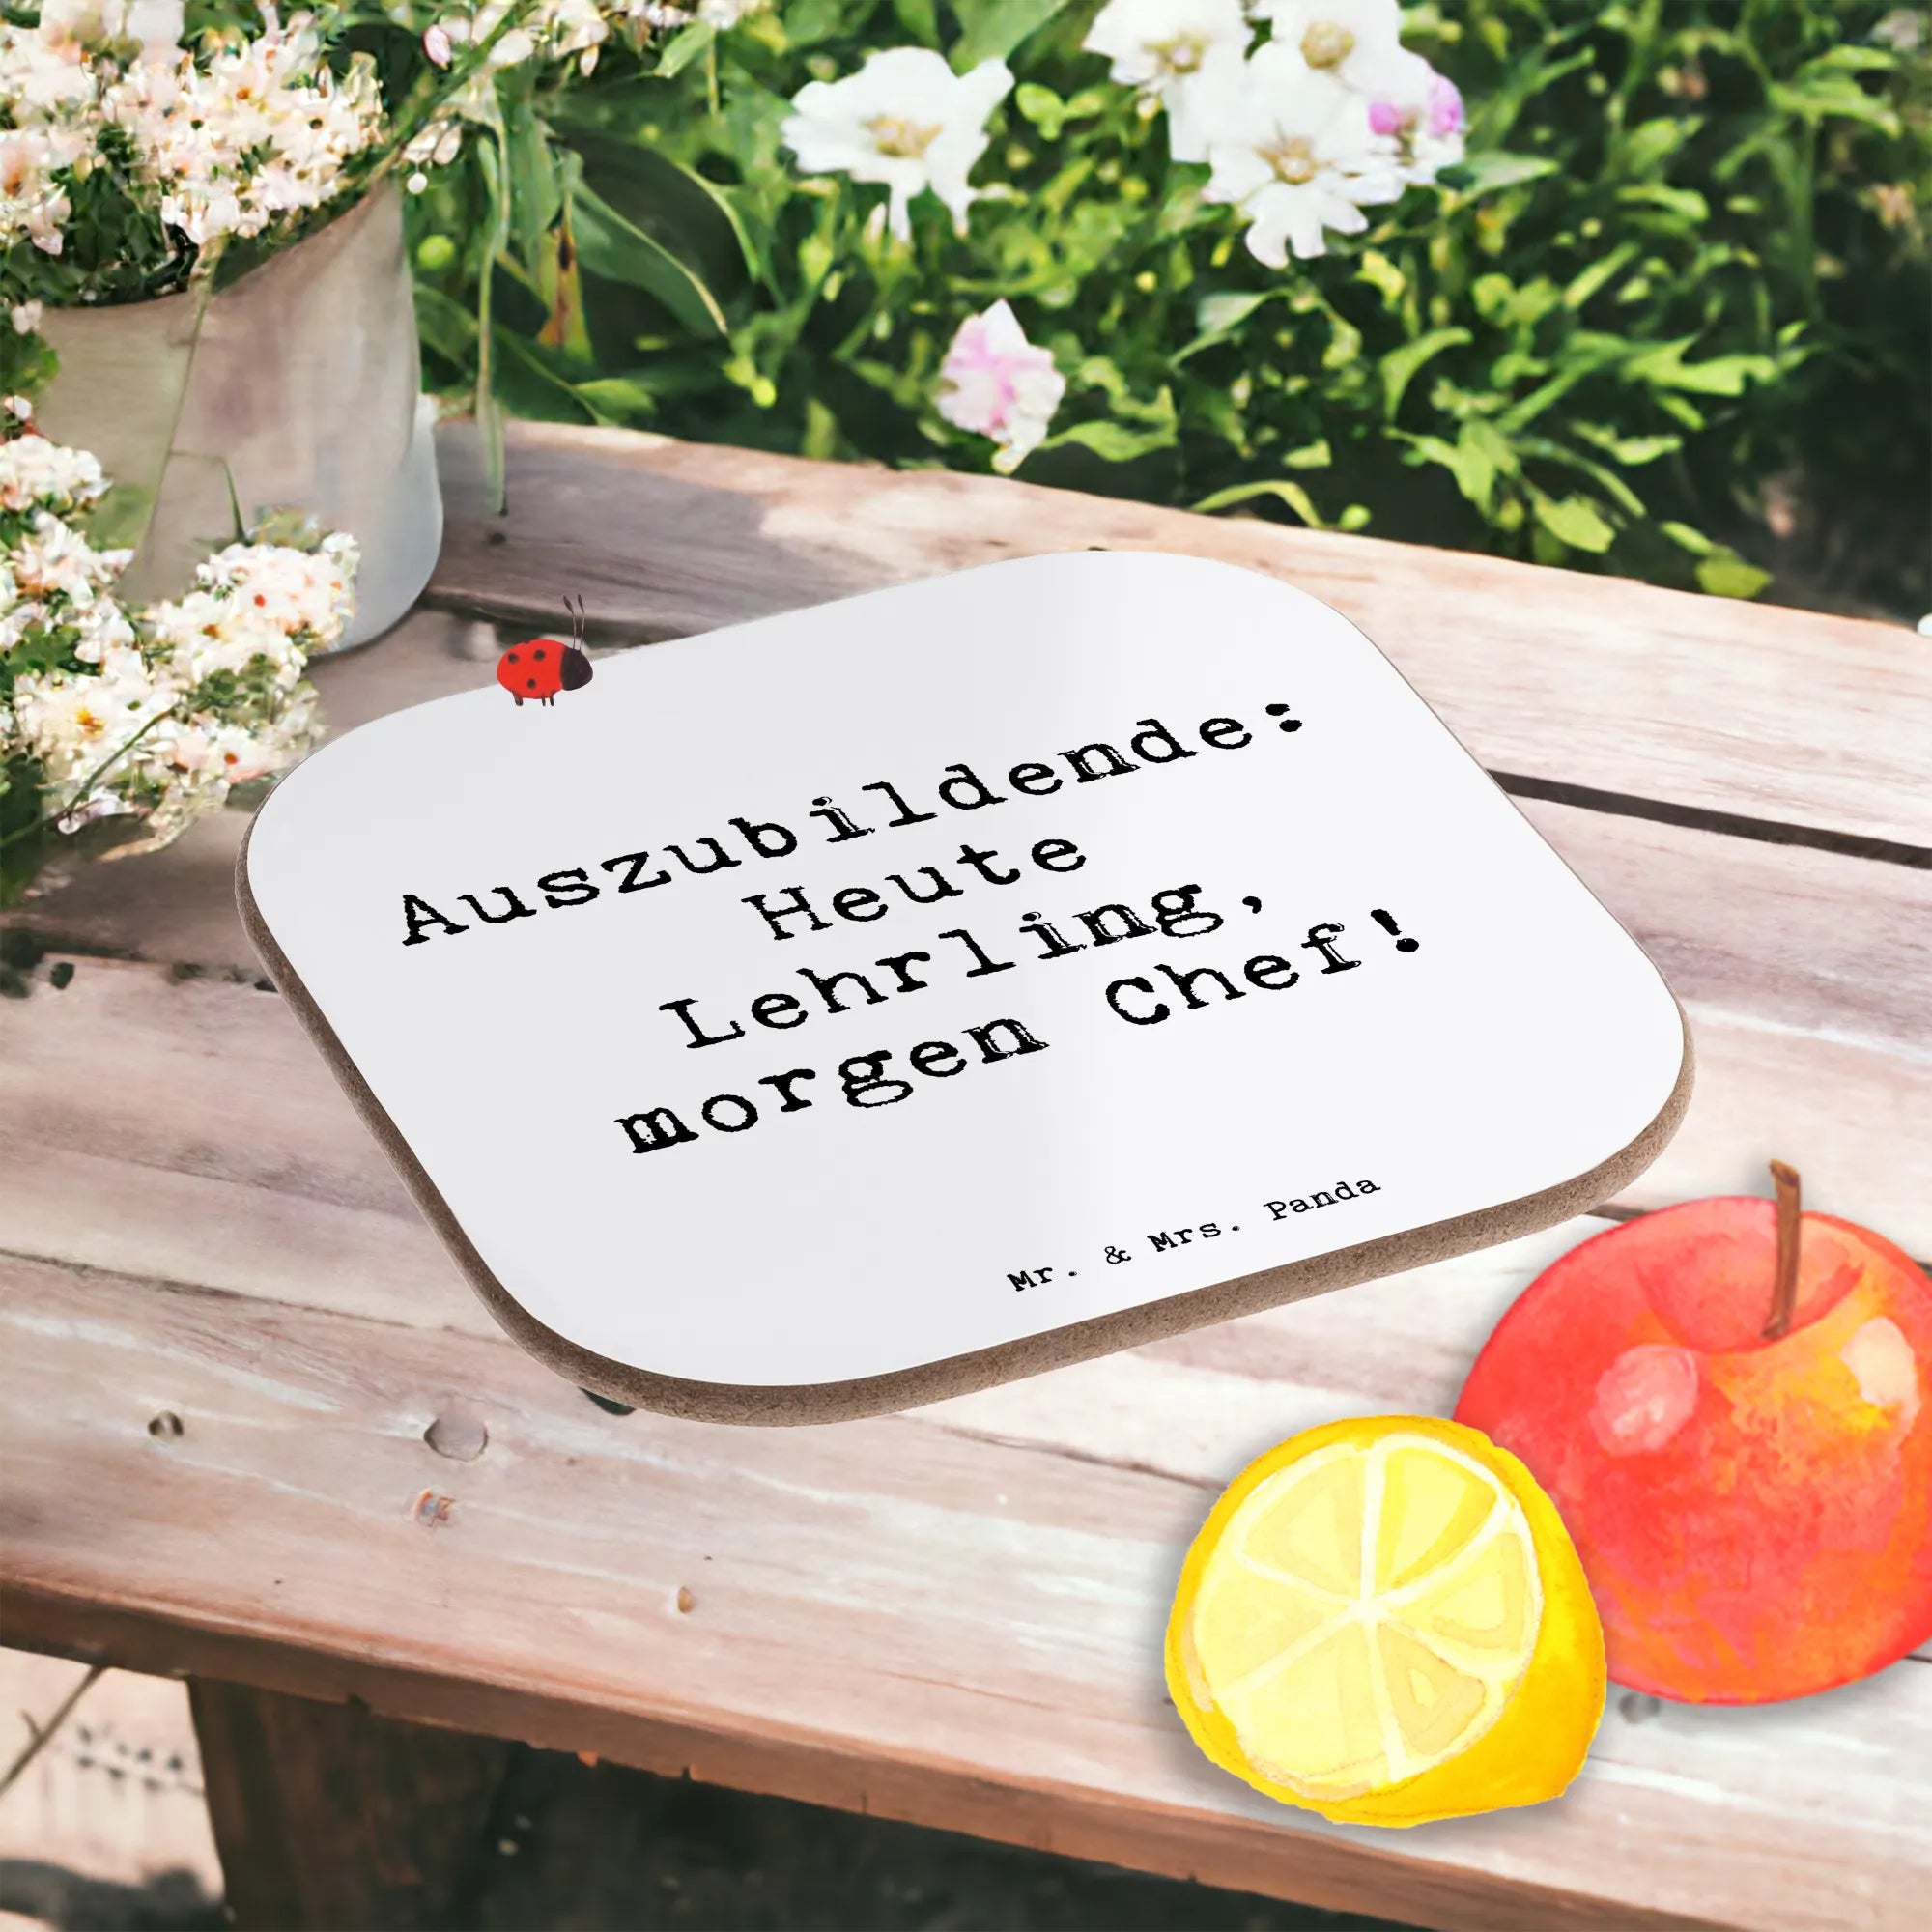 Auszubildende:
Heute
Lehrling,
morgen Chef!
Mr. & Mrs. Panda